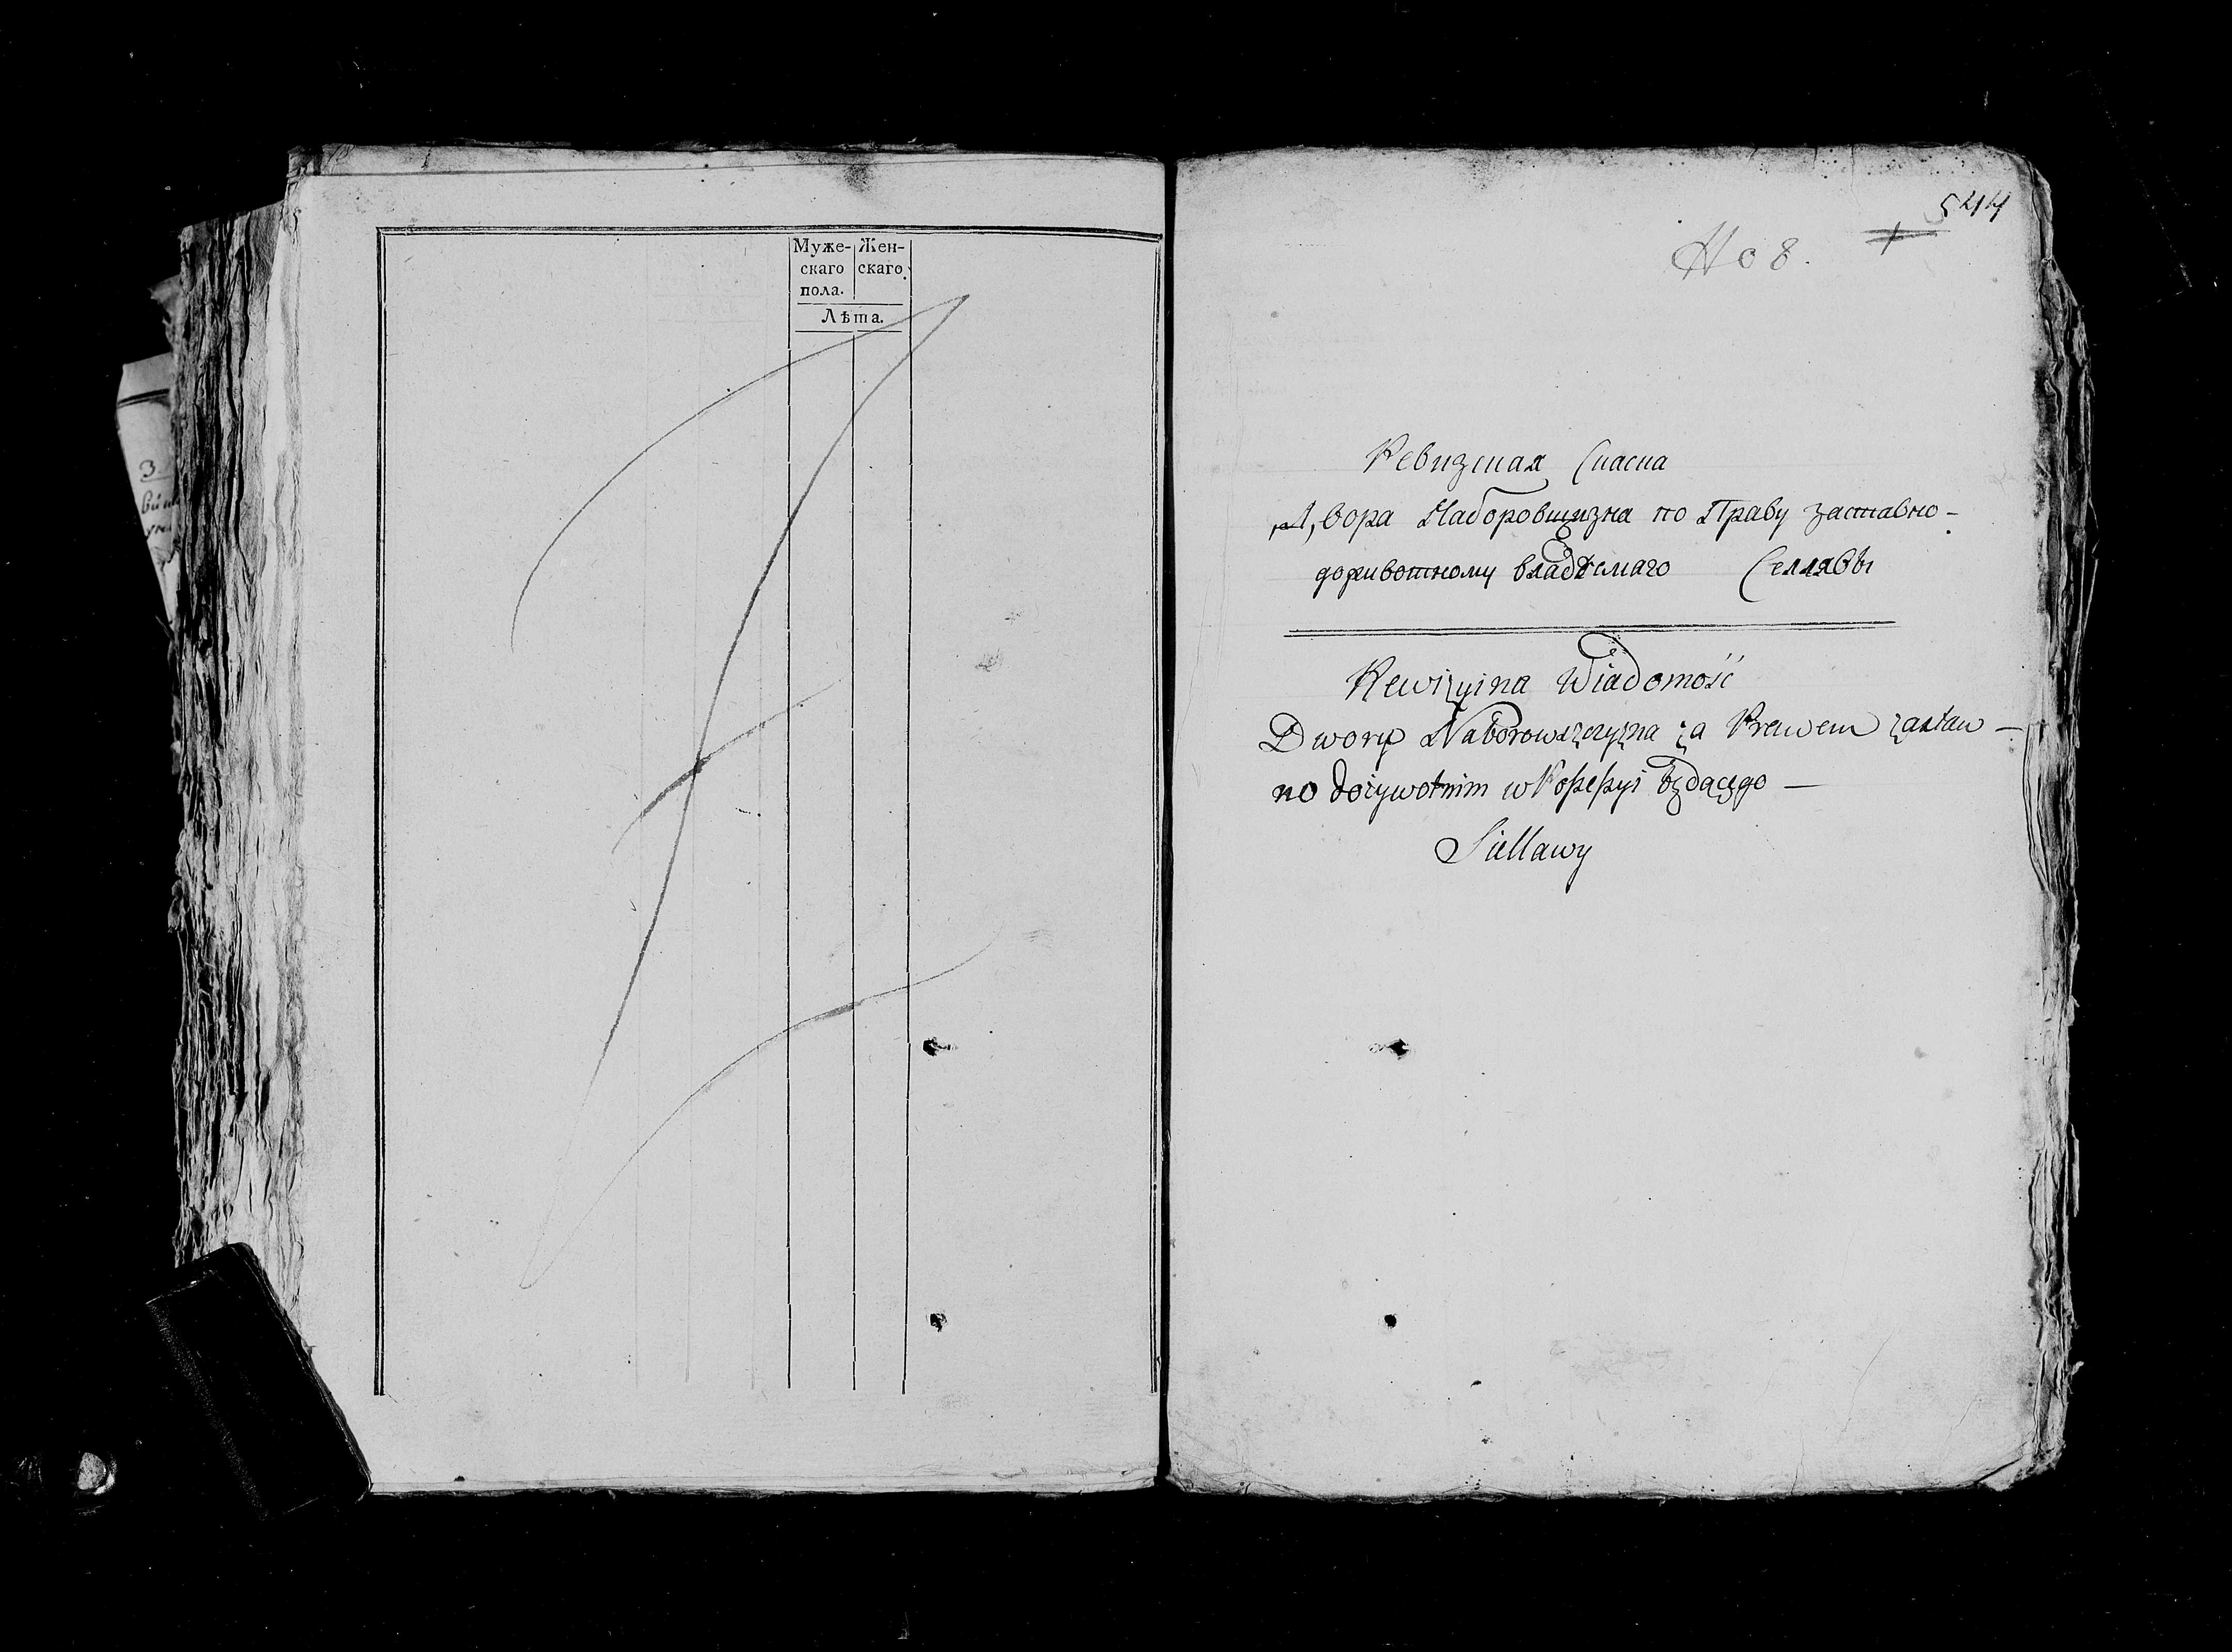 Муже- Жен-
скаго скаго
пола.
Лѣта.
3
544
Но 8.
Ревизская Скаска
Двора Наборовщизна по Праву заставно-
доживотному владѣемаго Селлявы
Rewizyina Wiadomość
Dworu Naborowszczyzna za Prawem zastaw-
no dożywotnim w Possessyi będącego —
Siellawy